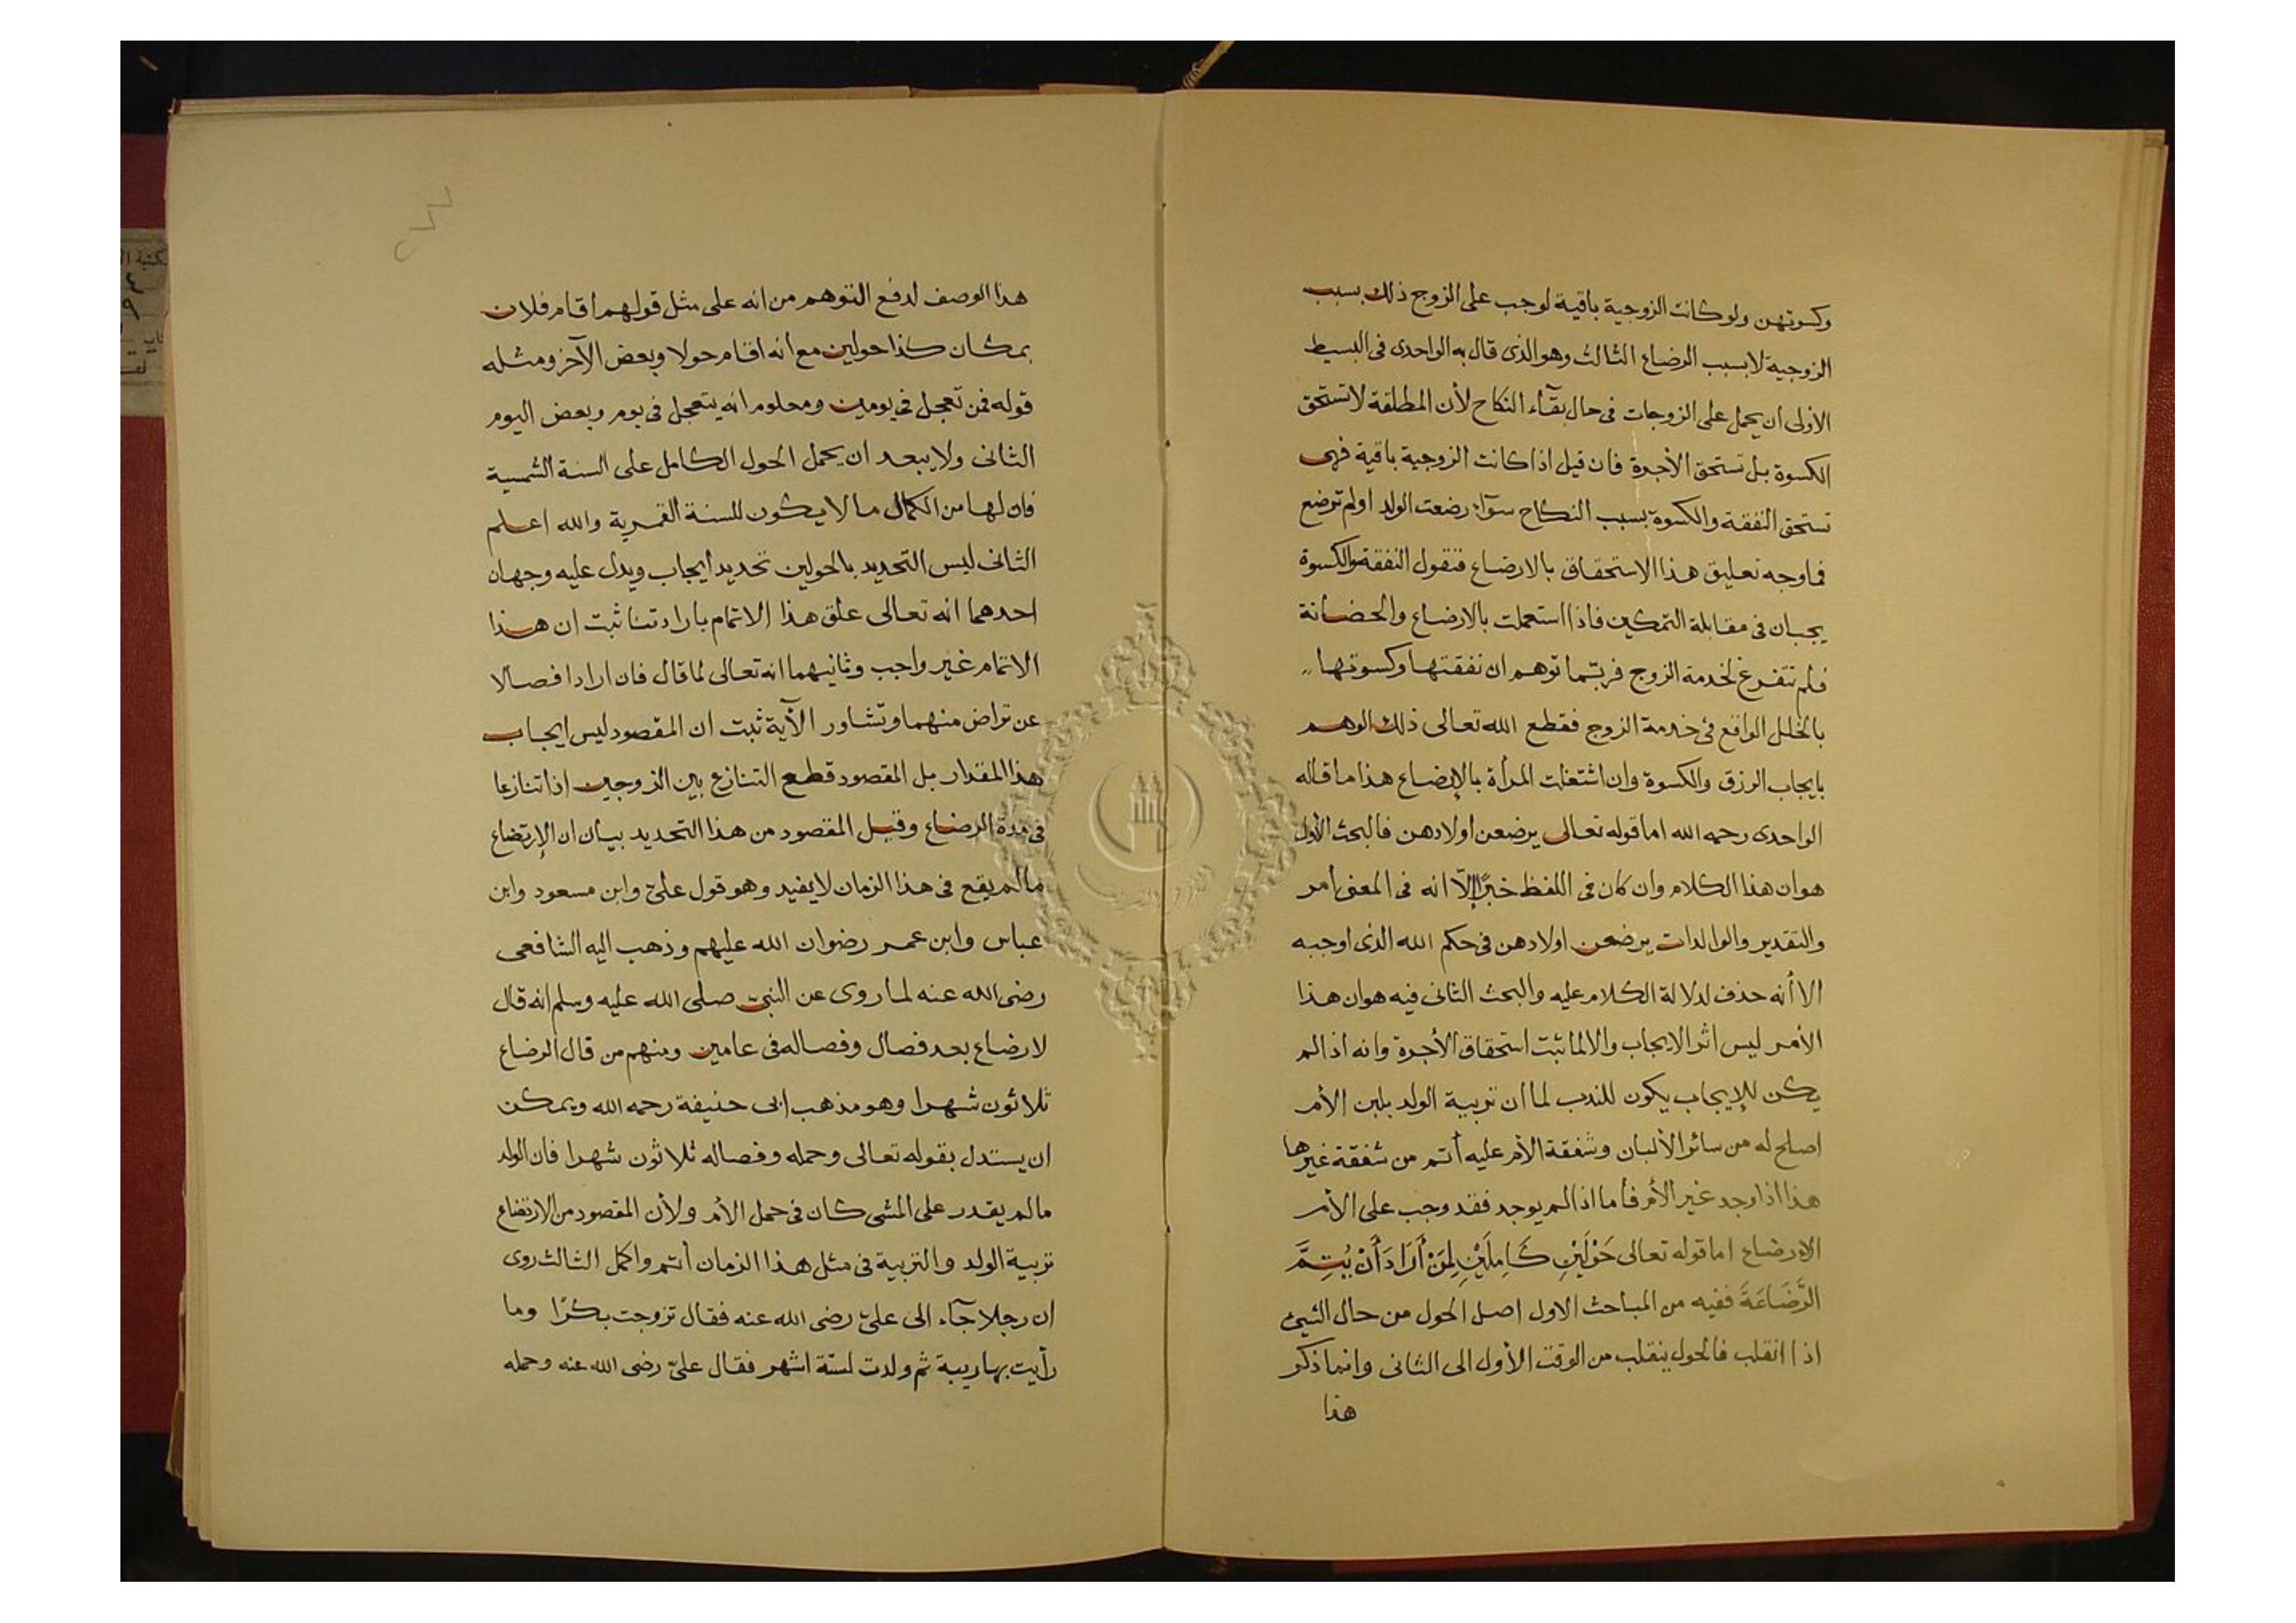 وكسوتهن ولو كانت الزوجية باقية لوجب على الزوج ذلك بسبب
الزوجية لا بسبب الرضاع الثالث وهو الذى قال به الواحدى فى البسيط
الأولى ان يحمل على الزوجات فى حال بقآء النكاح لأن المطلقة لا تستحق
الكسوة بل تستحق الأجرة فان قيل اذا كانت الزوجية باقية فهى
تستحق النفقة والكسوة بسبب النكاح سوآء رضعت الولد او لم ترضع
فما وجه تعليق هذا الاستحقاق بالارضاع فنقول النفقة والكسوة
يجبان فى مقابلة التمكين فاذا استعملت بالارضاع والحضانة
فلم تتفرغ لخدمة الزوج فربّما توهم ان نفقتها وكسوتها
بالخلل الواقع فى خدمة الزوج فقطع الله تعالى ذلك الوهم
بايجاب الرزق والكسوة وان اشتغلت المرأة بالإرضاع هذا ما قاله
الواحدى رحمه الله اما قوله تعالى يرضعن اولادهن فالبحث الأول
هو ان هذا الكلام وان كان فى اللفظ خبرًا إلّا انه فى المعنى أمر
والتقدير والوالدات يرضعن اولادهن فى حكم الله الذى اوجبه
الا أنه حذف لدلالة الكلام عليه والبحث الثانى فيه هو ان هذا
الأمر ليس اثر الايجاب والا لما ثبت استحقاق الأجرة وانه اذا لم
يكن للإيجاب يكون للندب لما ان تربية الولد بلبن الأم
اصلح له من سائر الألبان وشفقة الأم عليه أتم من شفقة غيرها
هذا اذا وجد غير الأم فأما اذا لم يوجد فقد وجب على الأم
الارضاع اما قوله تعالى حَوْلَيْنِ كَامِلَيْنِ لِمَنْ أَرَادَ أَنْ يُتِمَّ
الرَّضَاعَةَ ففيه من المباحث الاول اصل الحول من حال الشيئ
اذا انقلب فالحول ينقلب من الوقت الأول الى الثانى وانما ذكر
هذا
٢٧٧
هذا الوصف لدفع التوهم من انه على مثل قولهم اقام فلان
بمكان كذا حولين مع انه اقام حولا وبعض الآخر ومثله
قوله فمن تعجل فى يومين ومعلوم انه يتعجل فى يوم وبعض اليوم
الثانى ولا يبعد ان يحمل الحول الكامل على السنة الشمسية
فان لها من الكمال ما لا يكون للسنة القمرية والله اعلم
الثانى ليس التحديد بالحولين تحديد ايجاب ويدل عليه وجهان
احدهما انه تعالى علق هذا الاتمام بارادتنا ثبت ان هذا
الاتمام غير واجب وثانيهما انه تعالى لما قال فان ارادا فصالا
عن تراض منهما وتشاور الآية ثبت ان المقصود ليس ايجاب
هذا المقدار بل المقصود قطع التنازع بين الزوجين اذا تنازعا
فى مدة الرضاع وقيل المقصود من هذا التحديد بيان ان الإرتضاع
ما لم يقع فى هذا الزمان لا يفيد وهو قول علىّ وابن مسعود وابن
عباس وابن عمر رضوان الله عليهم وذهب اليه الشافعى
رضى الله عنه لما روى عن النبىّ صلى الله عليه وسلم انه قال
لا رضاع بعد فصال وفصاله فى عامين ومنهم من قال الرضاع
ثلاثون شهرا وهو مذهب ابى حنيفة رحمه الله ويمكن
ان يستدل بقوله تعالى وحمله وفصاله ثلاثون شهرا فان الولد
ما لم يقدر على المشى كان فى حمل الأم ولأن المقصود من الارتضاع
تربية الولد والتربية فى مثل هذا الزمان أتم واكمل الثالث روى
ان رجلا جآء الى علىّ رضى الله عنه فقال تزوجت بكرًا وما
رأيت بها ريبة ثم ولدت لستّة اشهر فقال علىّ رضى الله عنه وحمله